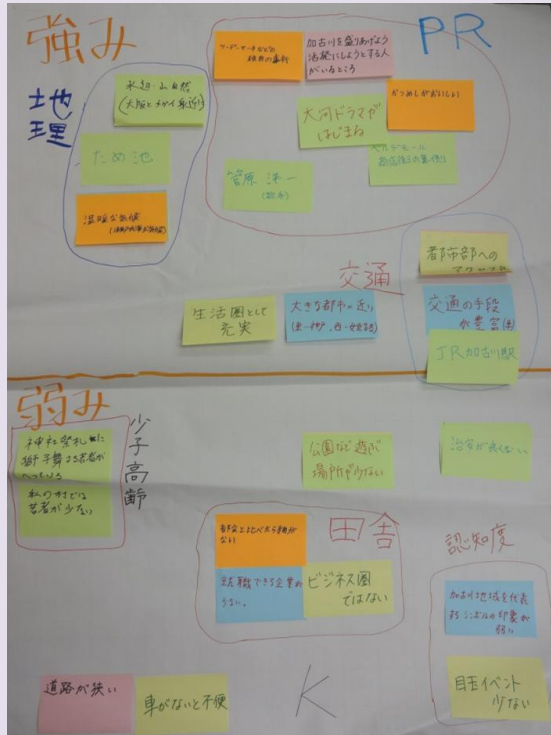 強み
PR
地理
水辺・山自然
(大阪と
ため池
温暖な気候
加古川を盛りあげよう
活発にしようとする人
がいるところ
かつめしがおいしい
大河ドラマが
はじまる
菅原 洋一
(歌手)
交通
都市部への
アクセス
交通の手段
が豊富
JR加古川駅
生活圏として
充実
大きな都市に近い
弱み
少子高齢
神社祭礼
獅子舞する若者が
へっている
私の村では
若者が少ない
公園など遊ぶ
場所が少ない
治安が良くない
田舎
都会と比べたら
ない
就職できる企業が
少ない。
ビジネス圏
ではない
認知度
加古川地域を代表
するシンボルの印象が
弱い
目玉イベント
少ない
道路が狭い
車がないと不便
K